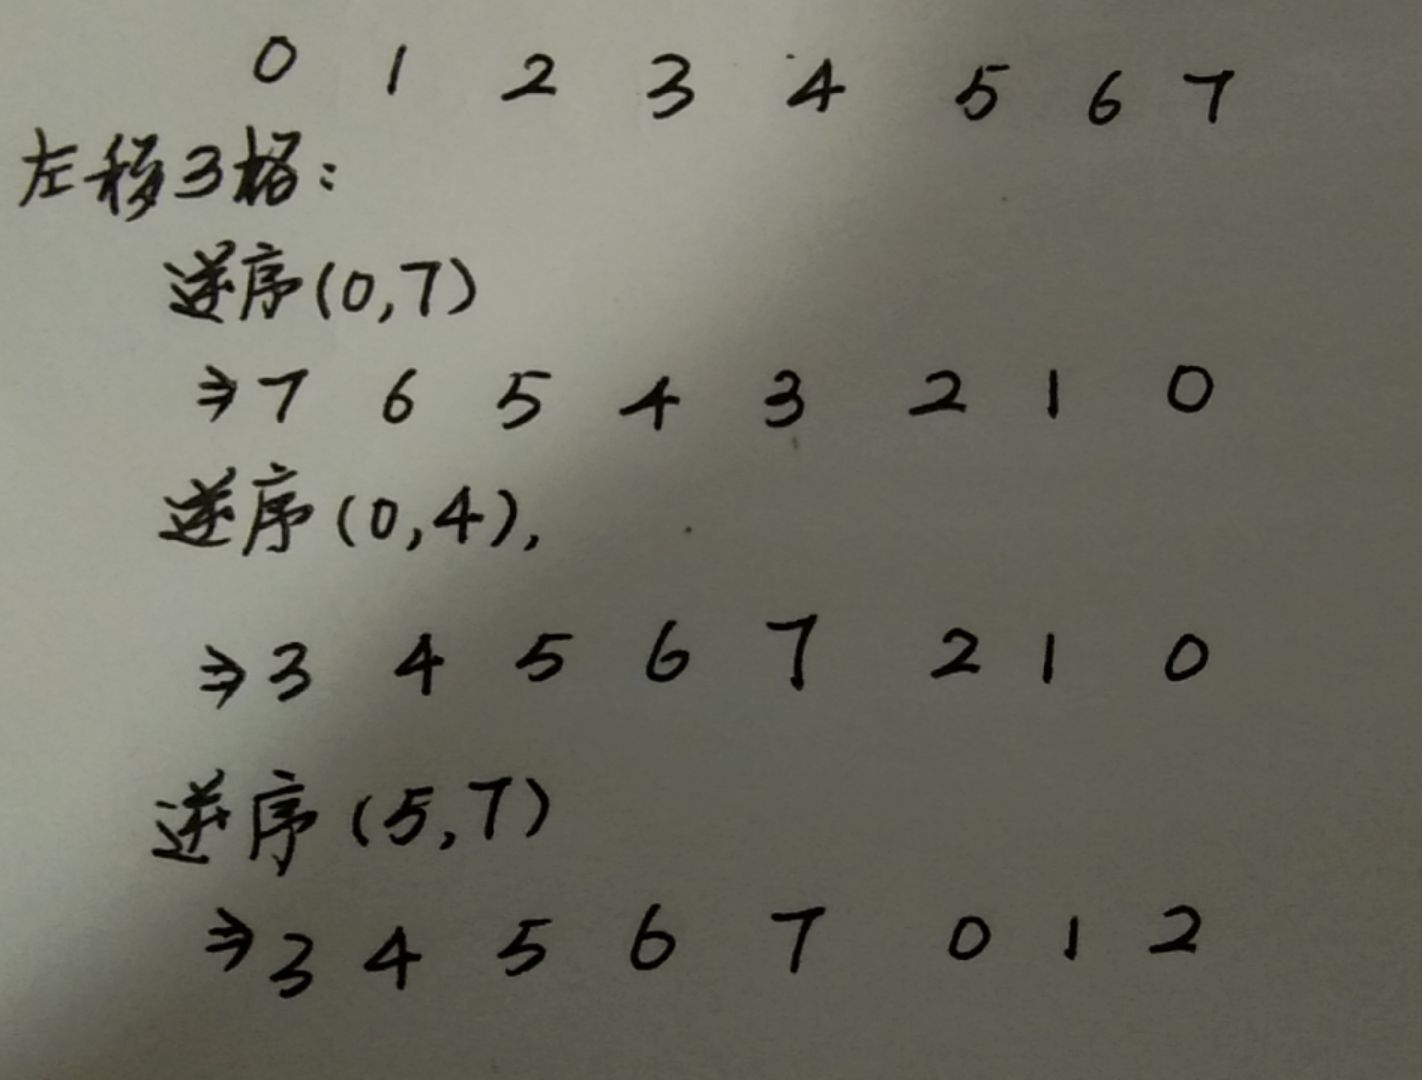 0 1 2 3 4 5 6 7
左移3格:
逆序(0,7)
⇒7 6 5 4 3 2 1 0
逆序(0,4),
⇒3 4 5 6 7 2 1 0
逆序(5,7)
⇒3 4 5 6 7 0 1 2